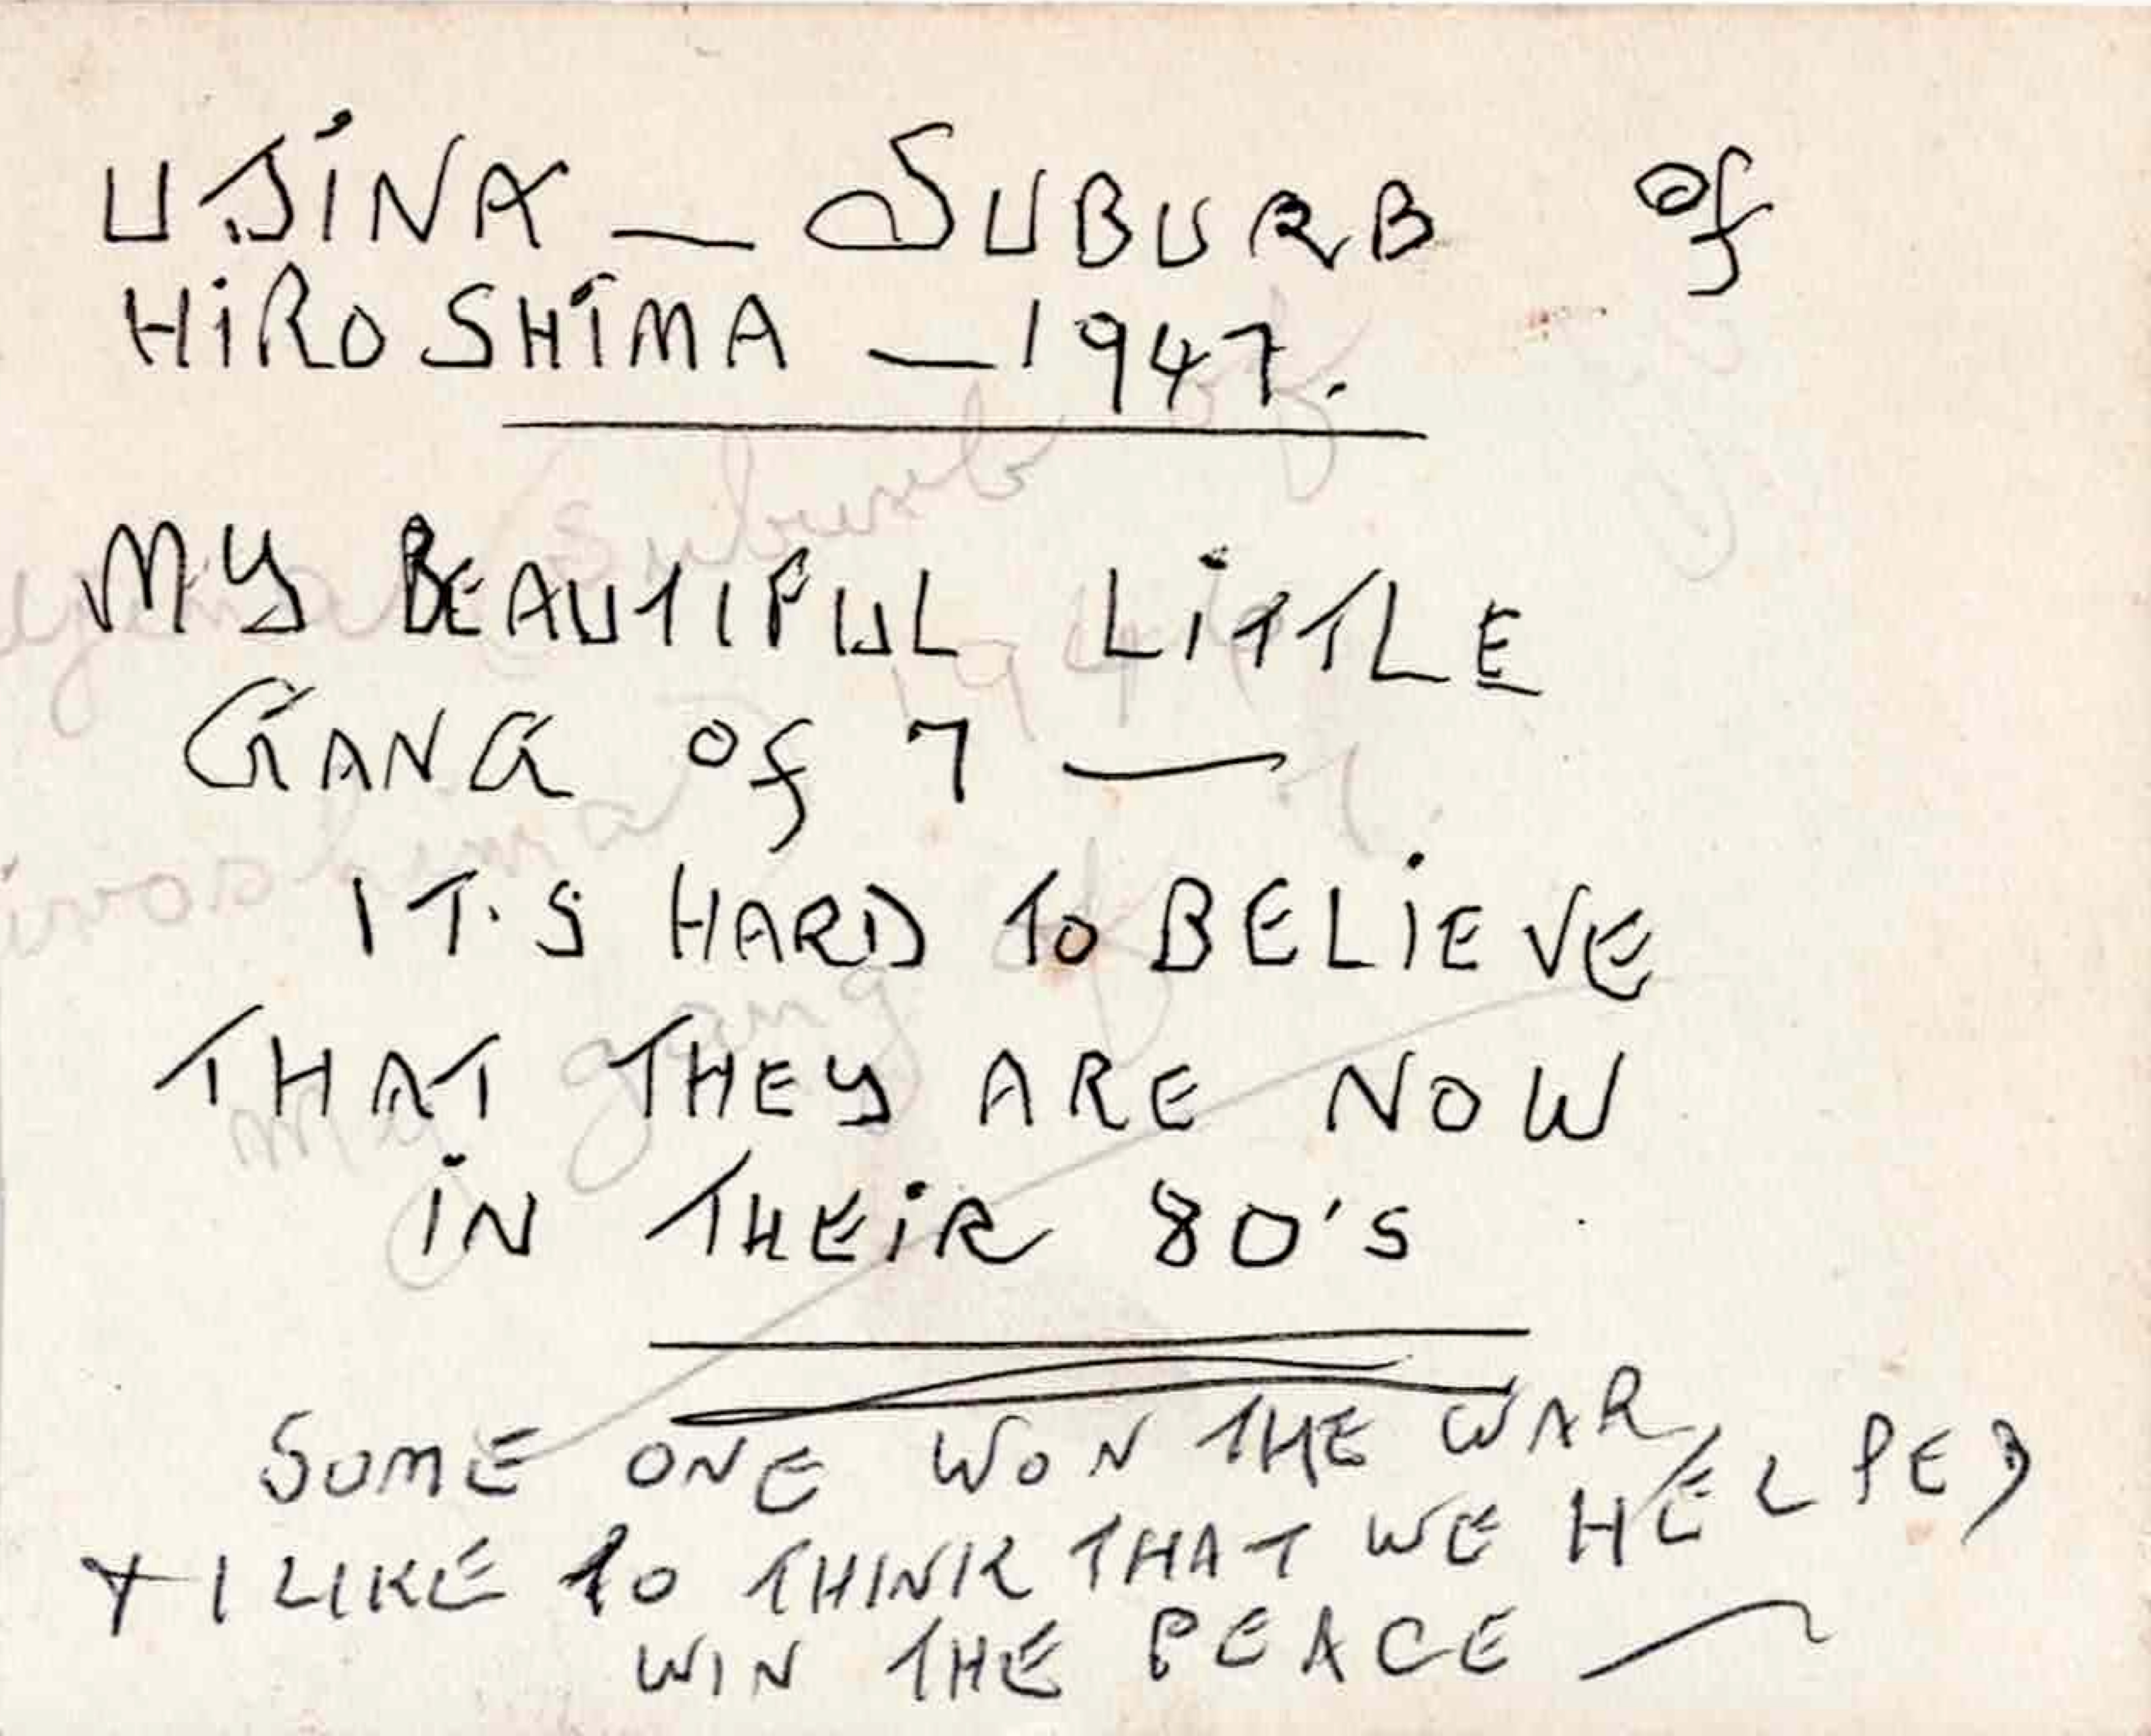 UJiNA — SUBURB of
HiROSHiMA — 1947.
MY BEAUTIFUL LiTTLE
GANG of 7 —
IT.S HARD TO BELiEVE
THAT THEY ARE NOW
iN THEiR 80'S
SOME ONE WON THE WAR
+ I LIKE TO THINK THAT WE HELPED
WIN THE PEACE —
suburb of
194
my gang of